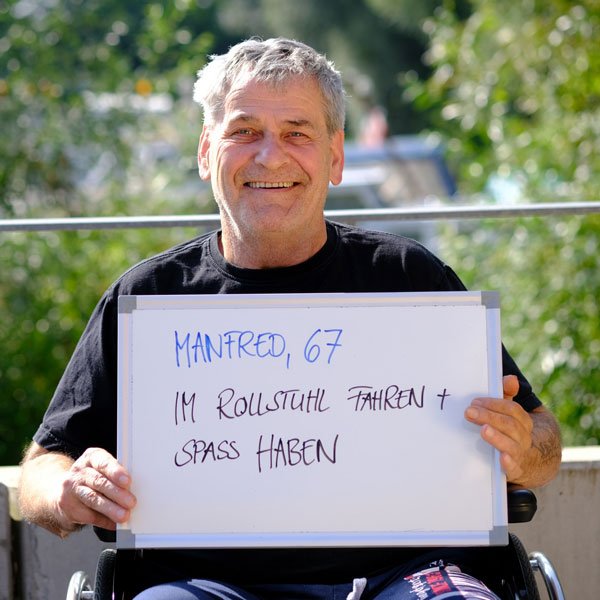 MANFRED, 67
IM ROLLSTUHL FAHREN +
SPASS HABEN